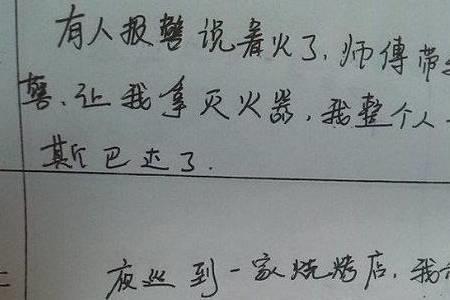 有人报警说着火了,师傅带
警,让我拿灭火器,我整个人
斯巴达了.
夜巡到一家烧烤店,我